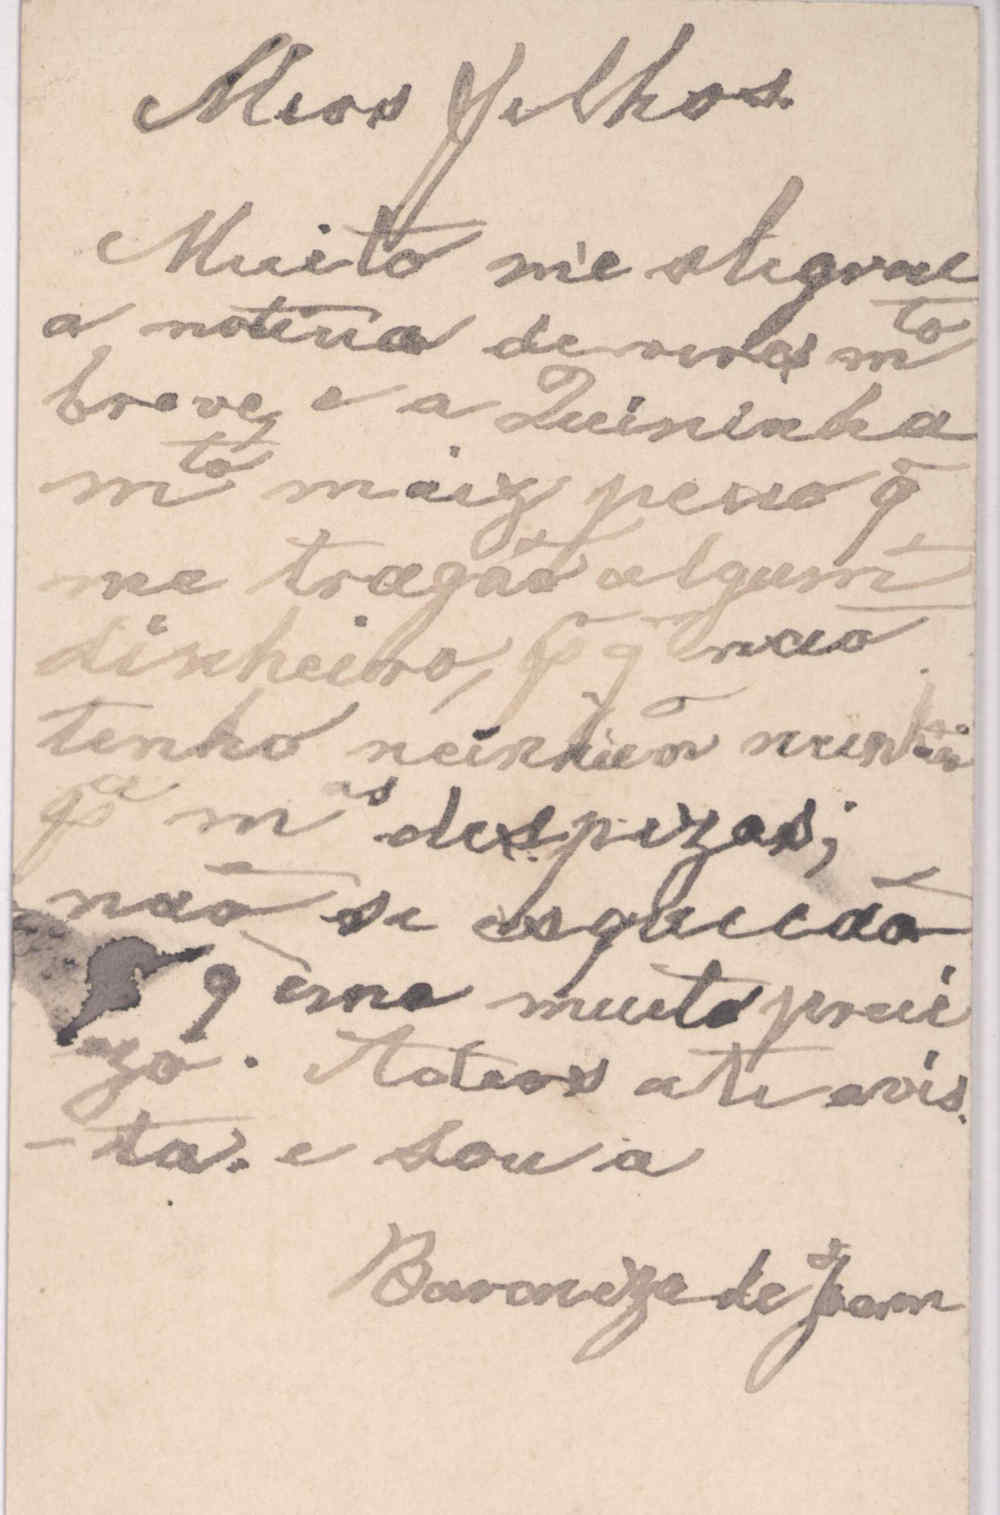 Meos filhos.
Muito me alegrou
a noticia de virem m.to
breve, e a Quininha
m.to maiz pesso q̃
me tragão algum
dinheiro, p q. não
tenho neinhum
p.a m.as despezas;
não se esqueção
q é me muito preci
zo. Adeos ate avis.
-ta. e sou a
Baroneza de